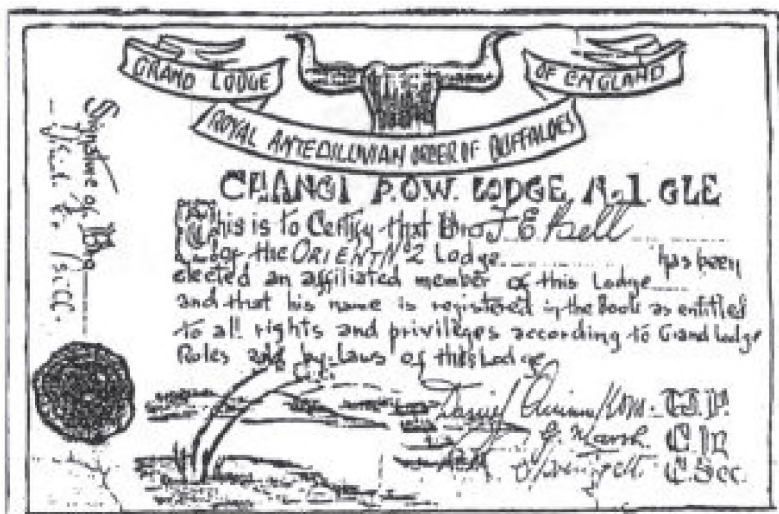 GRAND LODGE
OF ENGLAND
ROYAL ANTEDILUVIAN ORDER OF BUFFALOES
CHANGI P.O.W. LODGE No. 1 GLE
This is to Certify that Bro J E Bell
of the ORIENT No 2 Lodge has been
elected an affiliated member of this Lodge
and that his name is registered in the Books as entitled
to all rights and privileges according to Grand Lodge
Rules and by-laws of this Lodge
Signature of Bro
G. Marsh. C.
C. Sec.